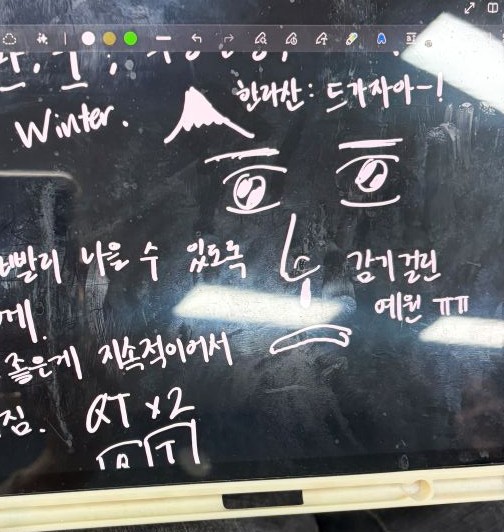 한라산: 드가자아~!
Winter.
빨리 나을 수 있도록
게.
감기 걸린
예원 ㅠㅠ
좋은게 지속적이어서
짐. QT x2